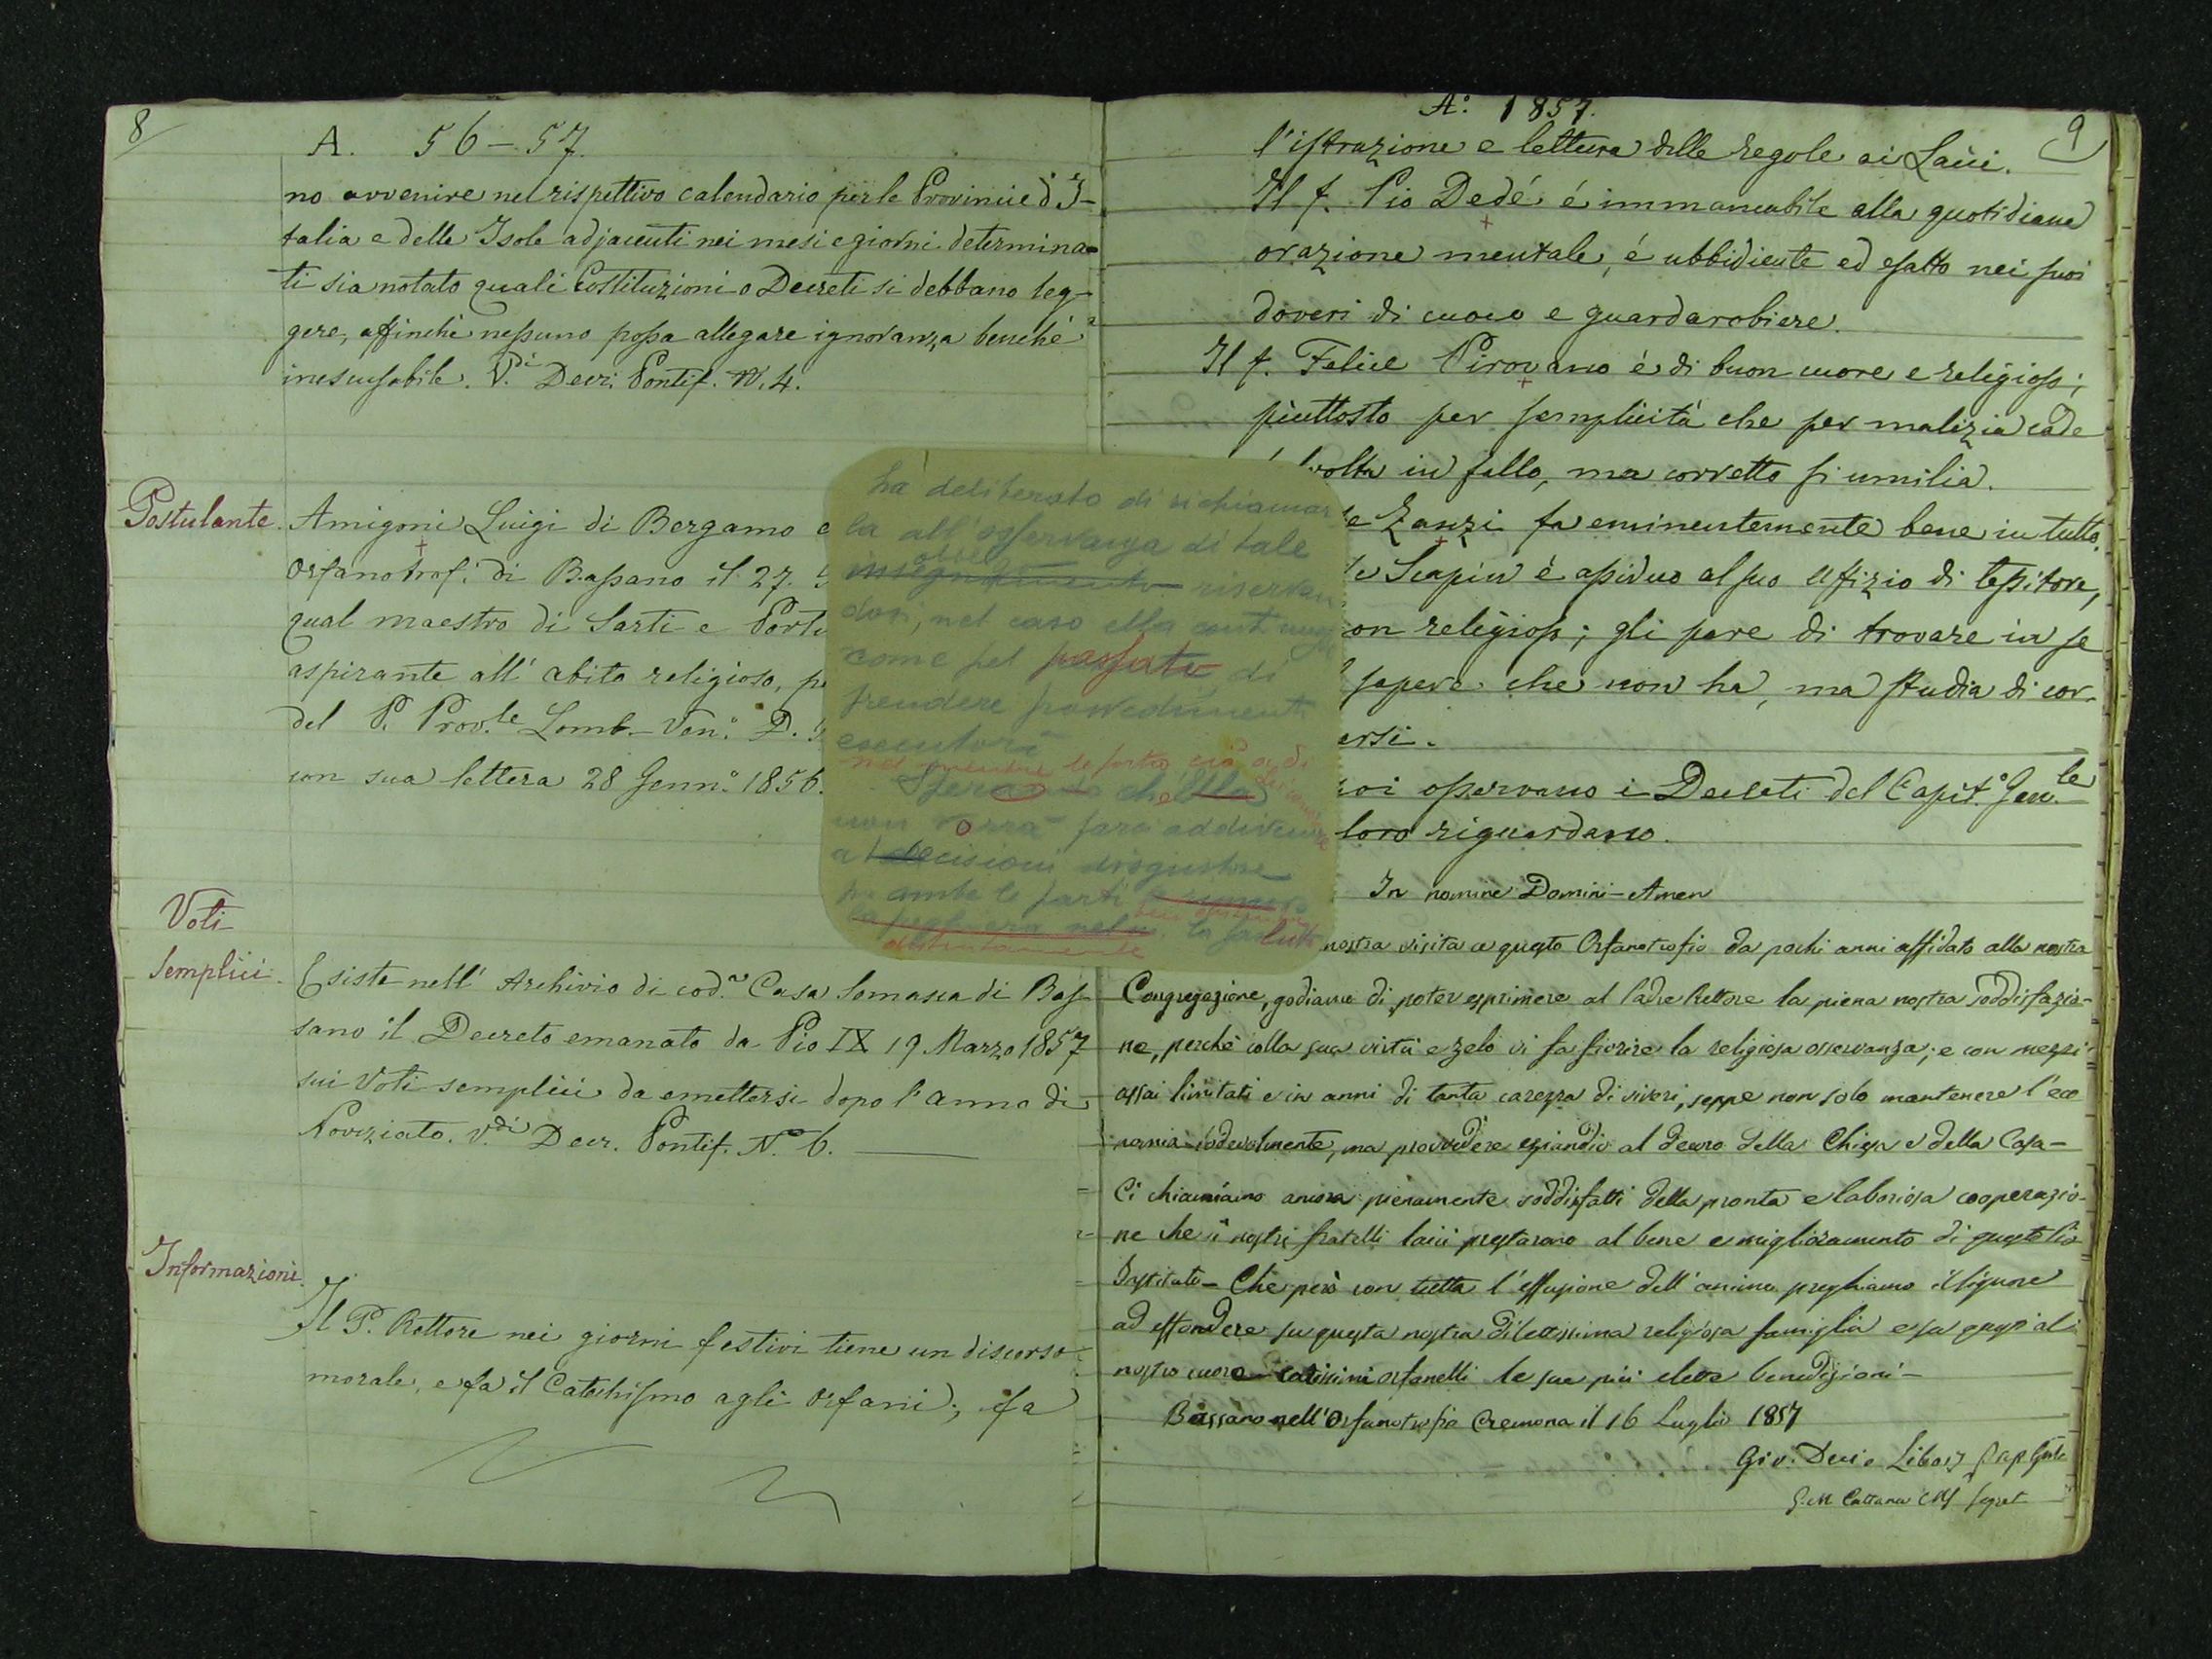 8
A. 56-57.
no avvenire nel rispettivo calendario per le Provincie d'I-
talia e delle Isole adjacenti nei mesi e giorni determina-
ti sia notato quali Costituzioni o Decreti si debbano leg-
gere, affinchè nessuno possa allegare ignoranza benchè
inescusabile. V.di Decr. Pontif. N. 4.
Postulante.
Amigoni Luigi di Bergamo e
Orfanotrof.° di Bassano il 27.
qual maestro di Sarti e
aspirante all' abito religioso,
del P. Prov.le Lomb.-Ven.° D.
con sua lettera 28 Genn.° 1856.
Voti
Semplici.
Esiste nell' Archivio di cod.a Casa Somasca di Bas-
sano il Decreto emanato da Pio IX 19 Marzo 1857
sui Voti semplici da emettersi dopo l'anno di
Noviziato. V.di Decr. Pontif. N.° 6.
Informazioni.
Il P. Rettore nei giorni festivi tiene un discorso
morale, e fa il Catechismo agli Orfani; fa
ha deliberato di richiamar
la all'osservanza di tale
riservan
dosi, nel caso ella
come pel passato di
prendere provvedimenti
esecutori
non vorrà farci addivenire
a decisioni disgustose
per ambe le parti
distintamente
A.° 1857.
9
l'istruzione e lettura delle regole ai Laici.
Il f. Pio Dedé é immancabile alla quotidiana
orazione mentale, é ubbidiente ed esatto nei suoi
doveri di cuoco e guardarobiere.
Il f. Felice Pirovano è di buon cuore e religioso;
piuttosto per semplicità che per malizia cade
volta in fallo, ma corretto si umilia.
Zanzi fa eminentemente bene in tutto.
Scapin è assiduo al suo uffizio di tessitore,
religioso; gli pare di trovare in se
sapere che non ha, ma studia di cor-
ersi.
osservano i Decreti del Capit.° Gen.le
loro riguardano.
In nomine Domini-Amen
nostra visita a questo Orfanotrofio da pochi anni affidato alla nostra
Congregazione, godiamo di poter esprimere al Padre Rettore la piena nostra soddisfazio-
ne, perchè colla sua virtù e zelo vi fa fiorire la religiosa osservanza; e con mezzi
assai limitati e in anni di tanta carezza di viveri, seppe non solo mantenere l'eco
nomia lodevolmente, ma provvedere eziandio al decoro della Chiesa e della Casa-
Ci chiamiamo ancora pienamente soddisfatti della pronta e laboriosa cooperazio-
ne che i nostri fratelli laici prestarono al bene e miglioramento di questo Pio
Istituto- Che però con tutta l'effusione dell'animo preghiamo il Signore
ad effondere su questa nostra dilettissima religiosa famiglia e su questi al
nostro cuore carissimi orfanelli le sue più elette benedizioni-
Bassano nell'Orfanotrofio Cremona il 16 Luglio 1857
Giv. Decio Libois Prep. Genle
G. M Cattaneo CRS Segret